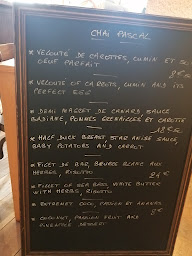 CHAI PASCAL
* VELOUTE DE CAROTTES, CUMIN ET SON
OEUF PARFAIT 8€
* VELOUTE OF CARROTS, CUMIN AND ITS
PERFECT EGG
* DEMI MAGRET DE CANARD SAUCE
BADIANE, POMMES GRENAILLES ET CAROTTE
18€
* HALF DUCK BREAST, STAR ANISE SAUCE,
BABY POTATOES AND CARROT
* FILET DE BAR, BEURRE BLANC AUX
HERBES, RISOTTO
* FILLET OF SEA BASS, WHITE BUTTER
WITH HERBS, RISOTTO
* COCO, PASSION ET ANANAS
8€
* COCONUT, PASSION FRUIT AND
PINEAPPLE DESSERT